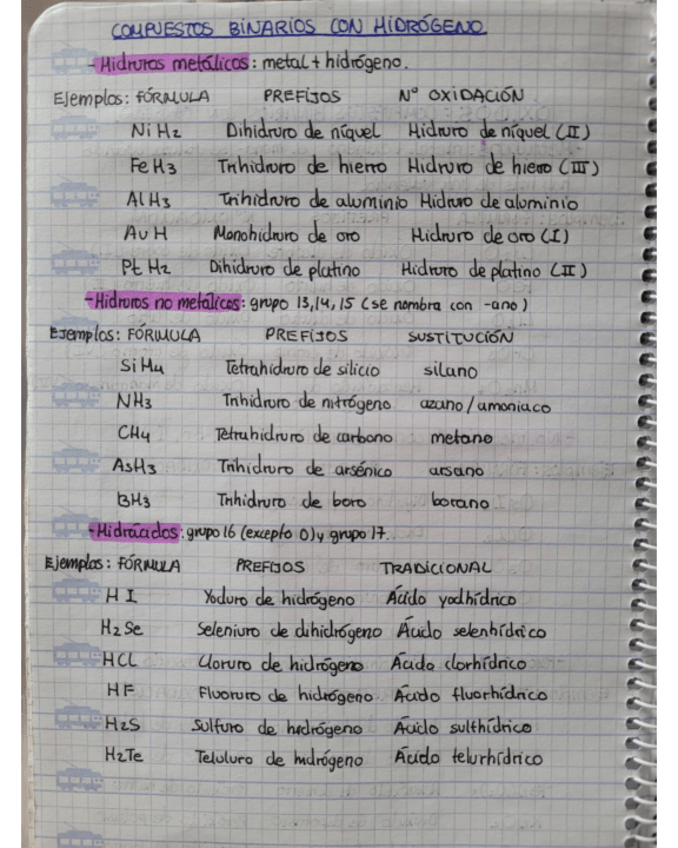 COMPUESTOS BINARIOS CON HIDRÓGENO.
- Hidruros metálicos: metal + hidrógeno.
Ejemplos: FÓRMULA PREFIJOS Nº OXIDACIÓN
NiH2 Dihidruro de níquel Hidruro de níquel (II)
FeH3 Trihidruro de hierro Hidruro de hierro (III)
AlH3 Trihidruro de aluminio Hidruro de aluminio
AuH Monohidruro de oro Hidruro de oro (I)
PtH2 Dihidruro de platino Hidruro de platino (II)
- Hidruros no metálicos: grupo 13,14,15 (se nombra con -ano)
Ejemplos: FÓRMULA PREFIJOS SUSTITUCIÓN
SiH4 Tetrahidruro de silicio silano
NH3 Trihidruro de nitrógeno azano/amoniaco
CH4 Tetrahidruro de carbono metano
AsH3 Trihidruro de arsénico arsano
BH3 Trihidruro de boro borano
- Hidrácidos: grupo 16 (excepto O) y grupo 17.
Ejemplos: FÓRMULA PREFIJOS TRADICIONAL
HI Yoduro de hidrógeno Ácido yodhídrico
H2Se Seleniuro de dihidrógeno Ácido selenhídrico
HCL Cloruro de hidrógeno Ácido clorhídrico
HF Fluoruro de hidrógeno Ácido fluorhídrico
H2S Sulfuro de hidrógeno Ácido sulfhídrico
H2Te Teluluro de hidrógeno Ácido telurhídrico